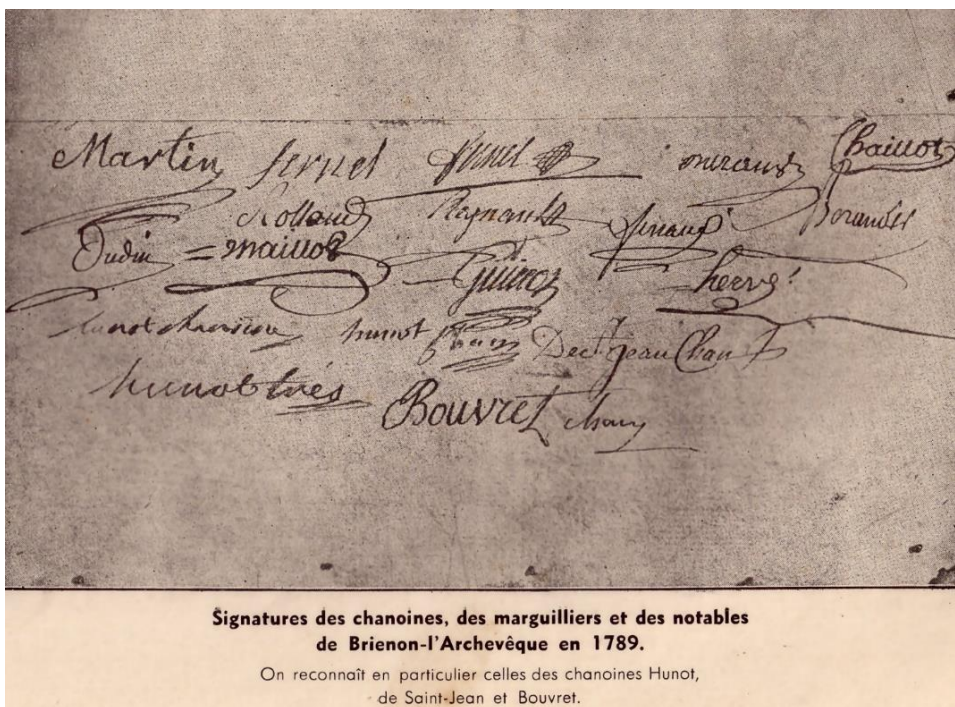 Martin fernel hunot miraud Chaillot
Rolland Regnault pinaud Borandes
Judin = maillot Guillot herve
hunot chanoine hunot chan Dec St Jean Chan
hunot trés Bouvret chan
Signatures des chanoines, des marguilliers et des notables
de Brienon-l'Archevêque en 1789.
On reconnaît en particulier celles des chanoines Hunot,
de Saint-Jean et Bouvret.